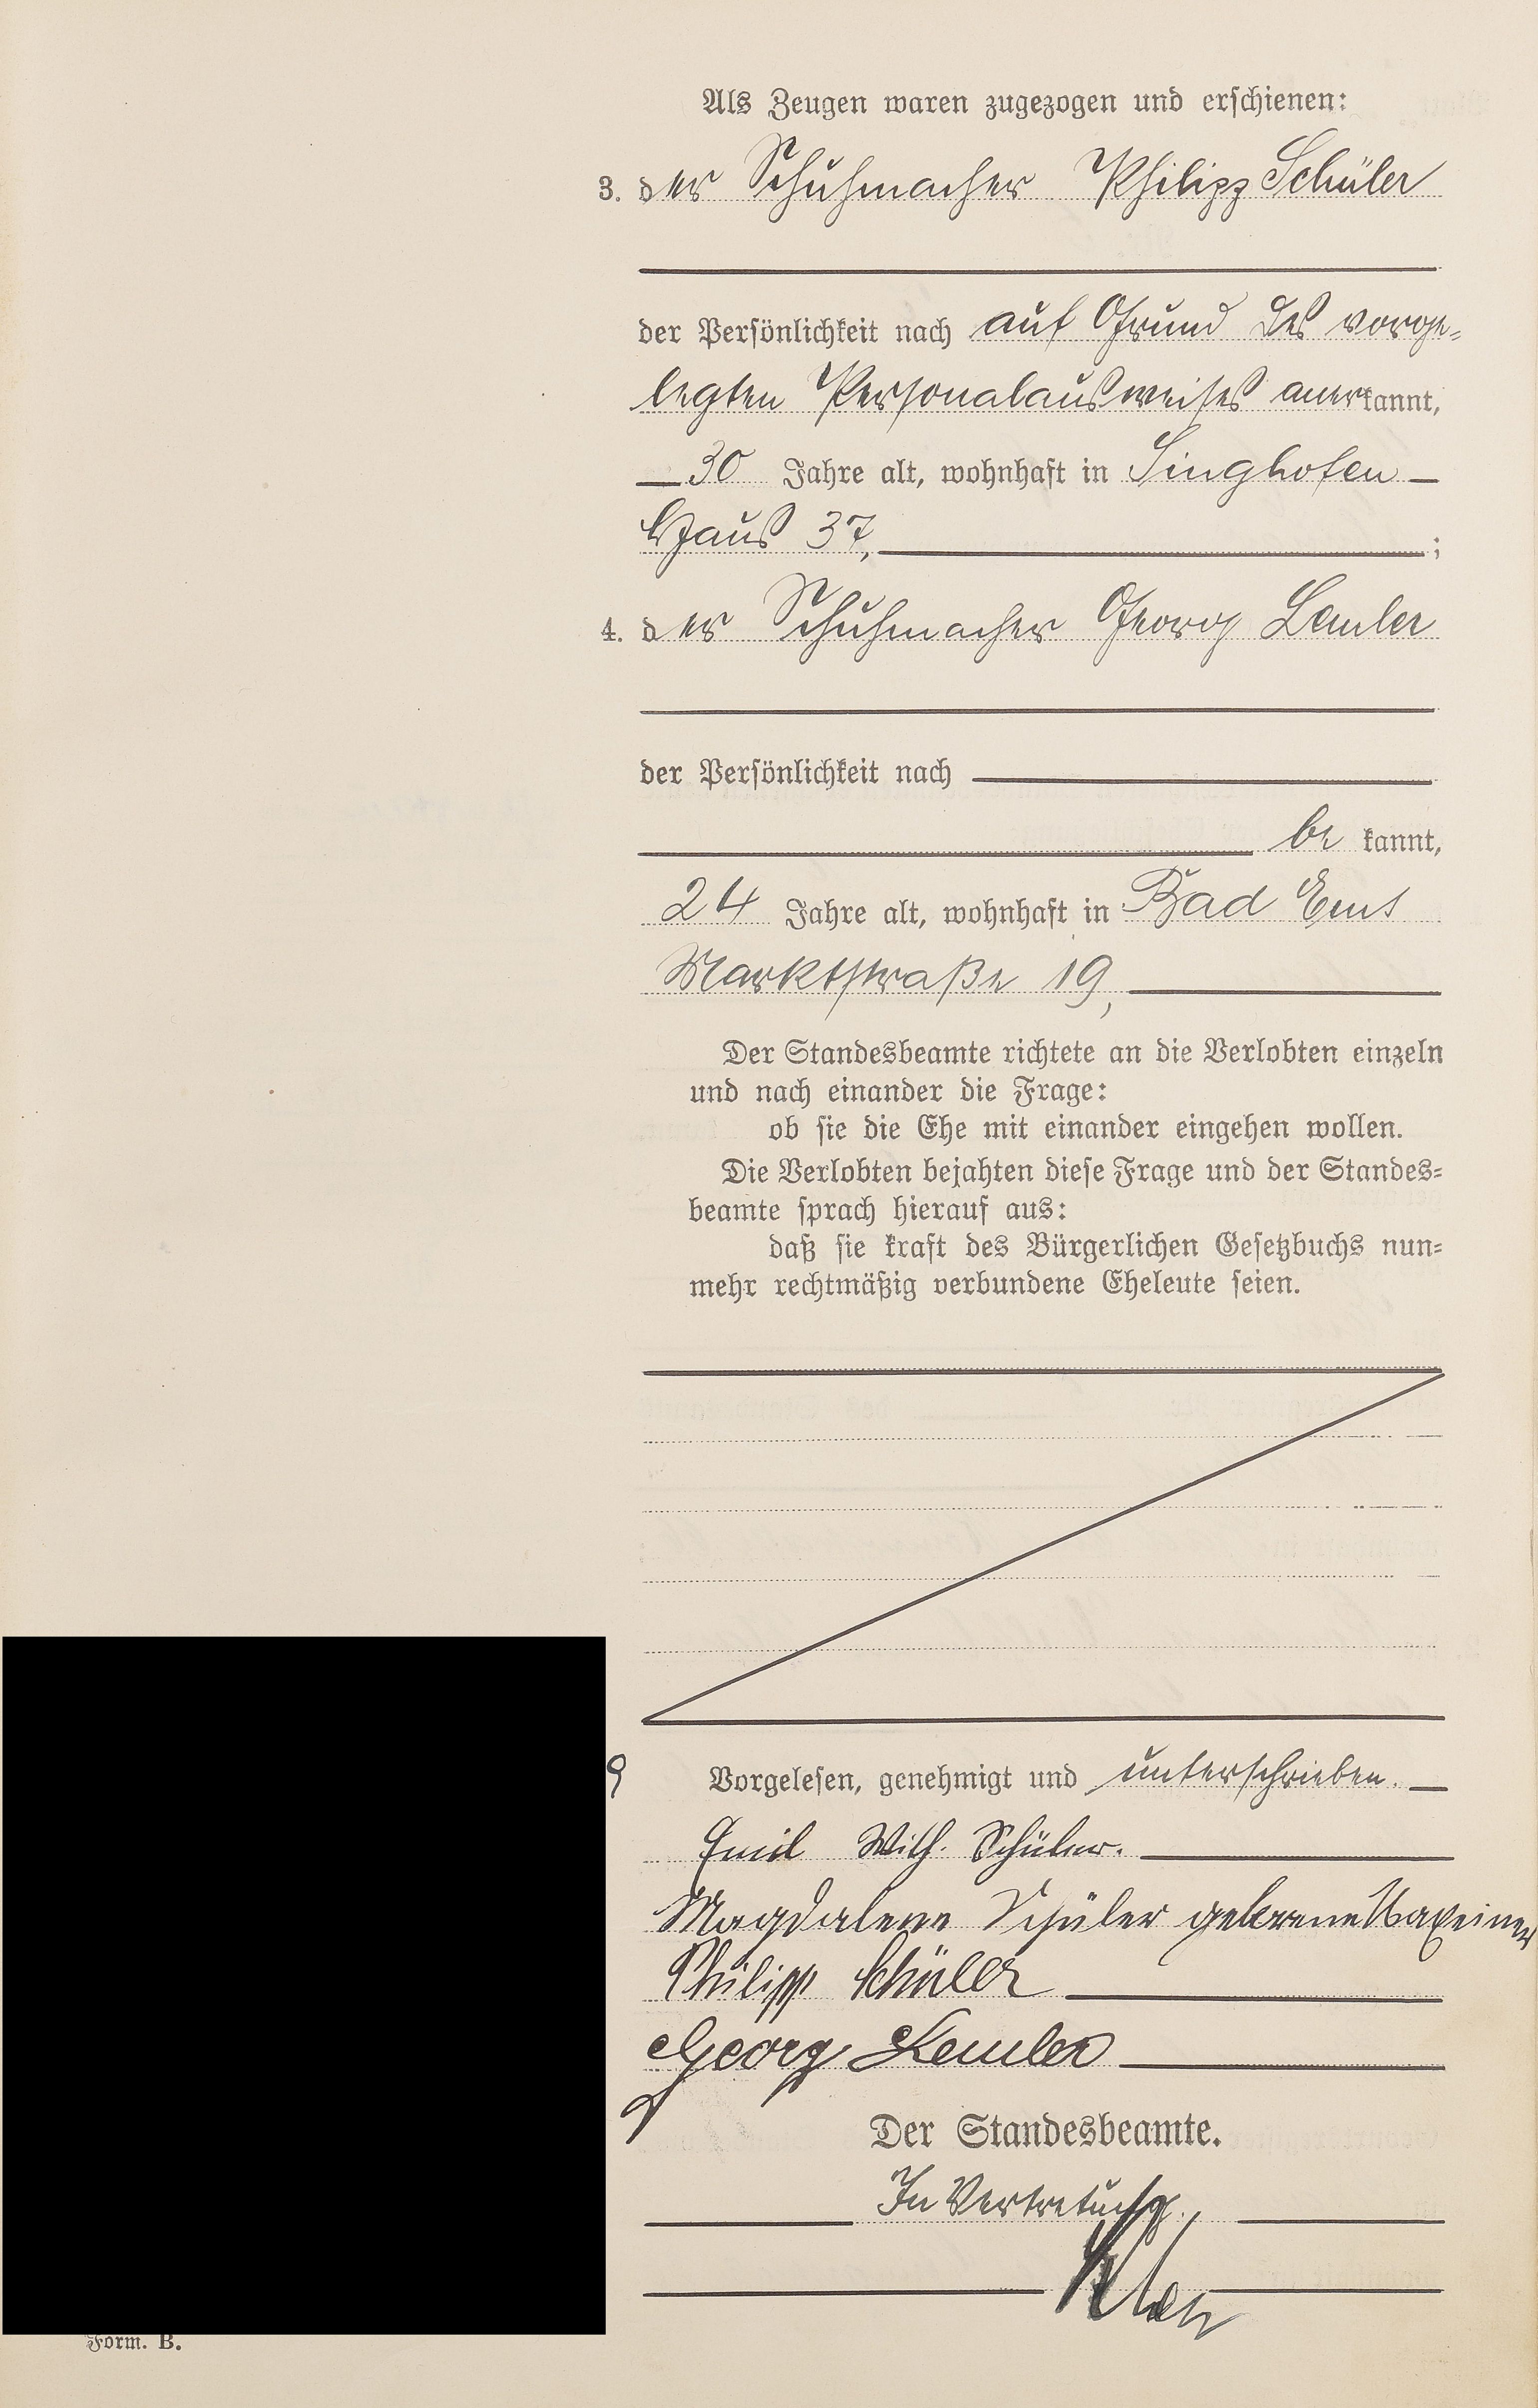 Als Zeugen waren zugezogen und erschienen:
3. der Schuhmacher Philipp Schüler
der Persönlichkeit nach auf Grund des vorge-
legten Personalausweises anerkannt,
30 Jahre alt, wohnhaft in Singhofen
Haus 37, ;
4. der Schuhmacher Georg Lemler
der Persönlichkeit nach
be kannt,
24 Jahre alt, wohnhaft in Bad Ems
Marktstraße 19,
Der Standesbeamte richtete an die Verlobten einzeln
und nach einander die Frage:
ob sie die Ehe mit einander eingehen wollen.
Die Verlobten bejahten diese Frage und der Standes-
beamte sprach hierauf aus:
daß sie kraft des Bürgerlichen Gesetzbuchs nun-
mehr rechtmäßig verbundene Eheleute seien.
Vorgelesen, genehmigt und unterschrieben.
Emil Wilh. Schüler.
Magdalene Schüler geborene Maxeiner
Philipp Schüler
Georg Lemler
Der Standesbeamte.
In Vertretung.
Form. B.